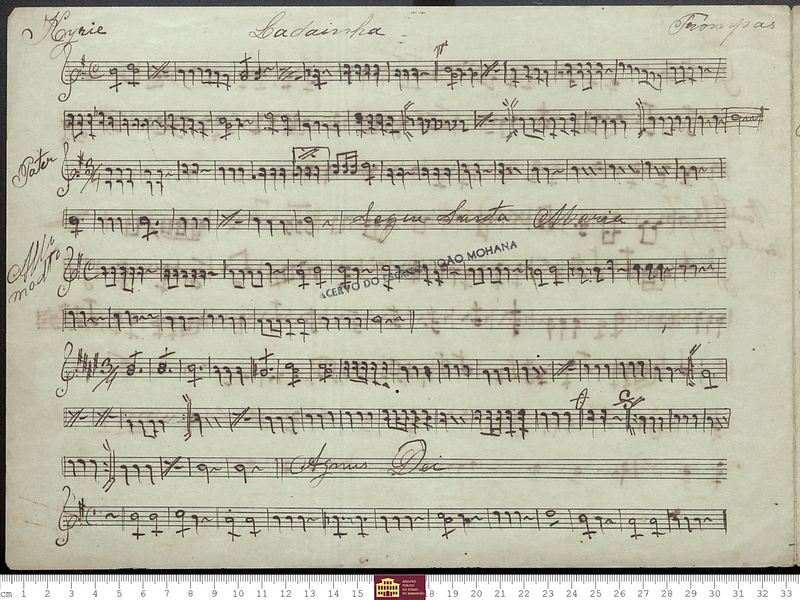 Kyrie Ladainha Trompas
Pater
Segue Santa Maria
All:
mod:to
ACERVO DO JOÃO MOHANA
Agnus Dei
cm 1 2 3 4 5 6 7 8 9 10 11 12 13 14 15 16 18 19 20 21 22 23 24 25 26 27 28 29 30 31 32 33
ARQUIVO
PÚBLICO
DO ESTADO
DO MARANHÃO